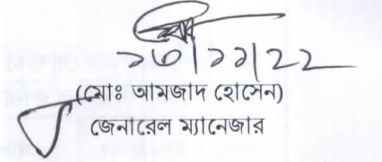 ১৩|১১|২২
(মোঃ আমজাদ হোসেন)
জেনারেল ম্যানেজার